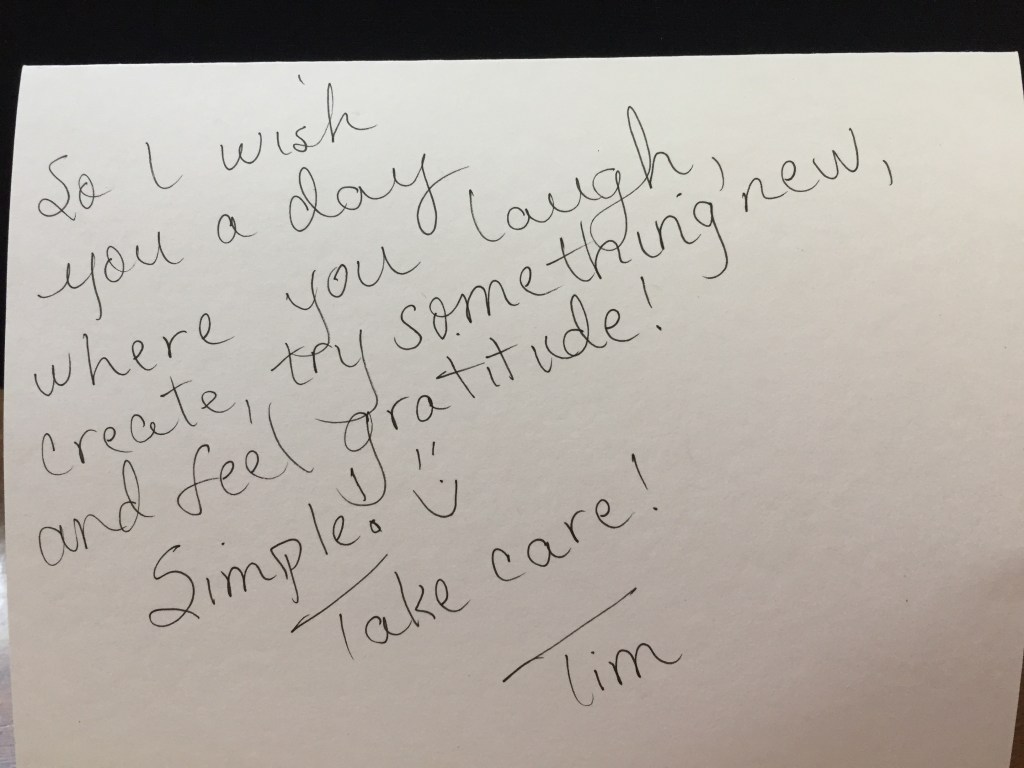 So I wish
you a day
where you laugh,
create, try something new,
and feel gratitude!
Simple. :)
Take care!
Tim